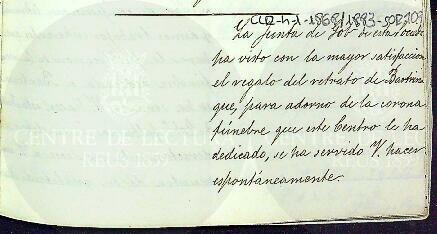 CLR-h-1-1868/1893-508/109
La Junta de Gob. de esta Socied.
ha visto con la mayor satisfaccion
el regalo del retrato de Bartrina
que, para adorno de la corona
fúnebre que este Centro le ha
dedicado, se ha servido V. hacer
espontáneamente.
CENTRE DE LECTURA
REUS 1859